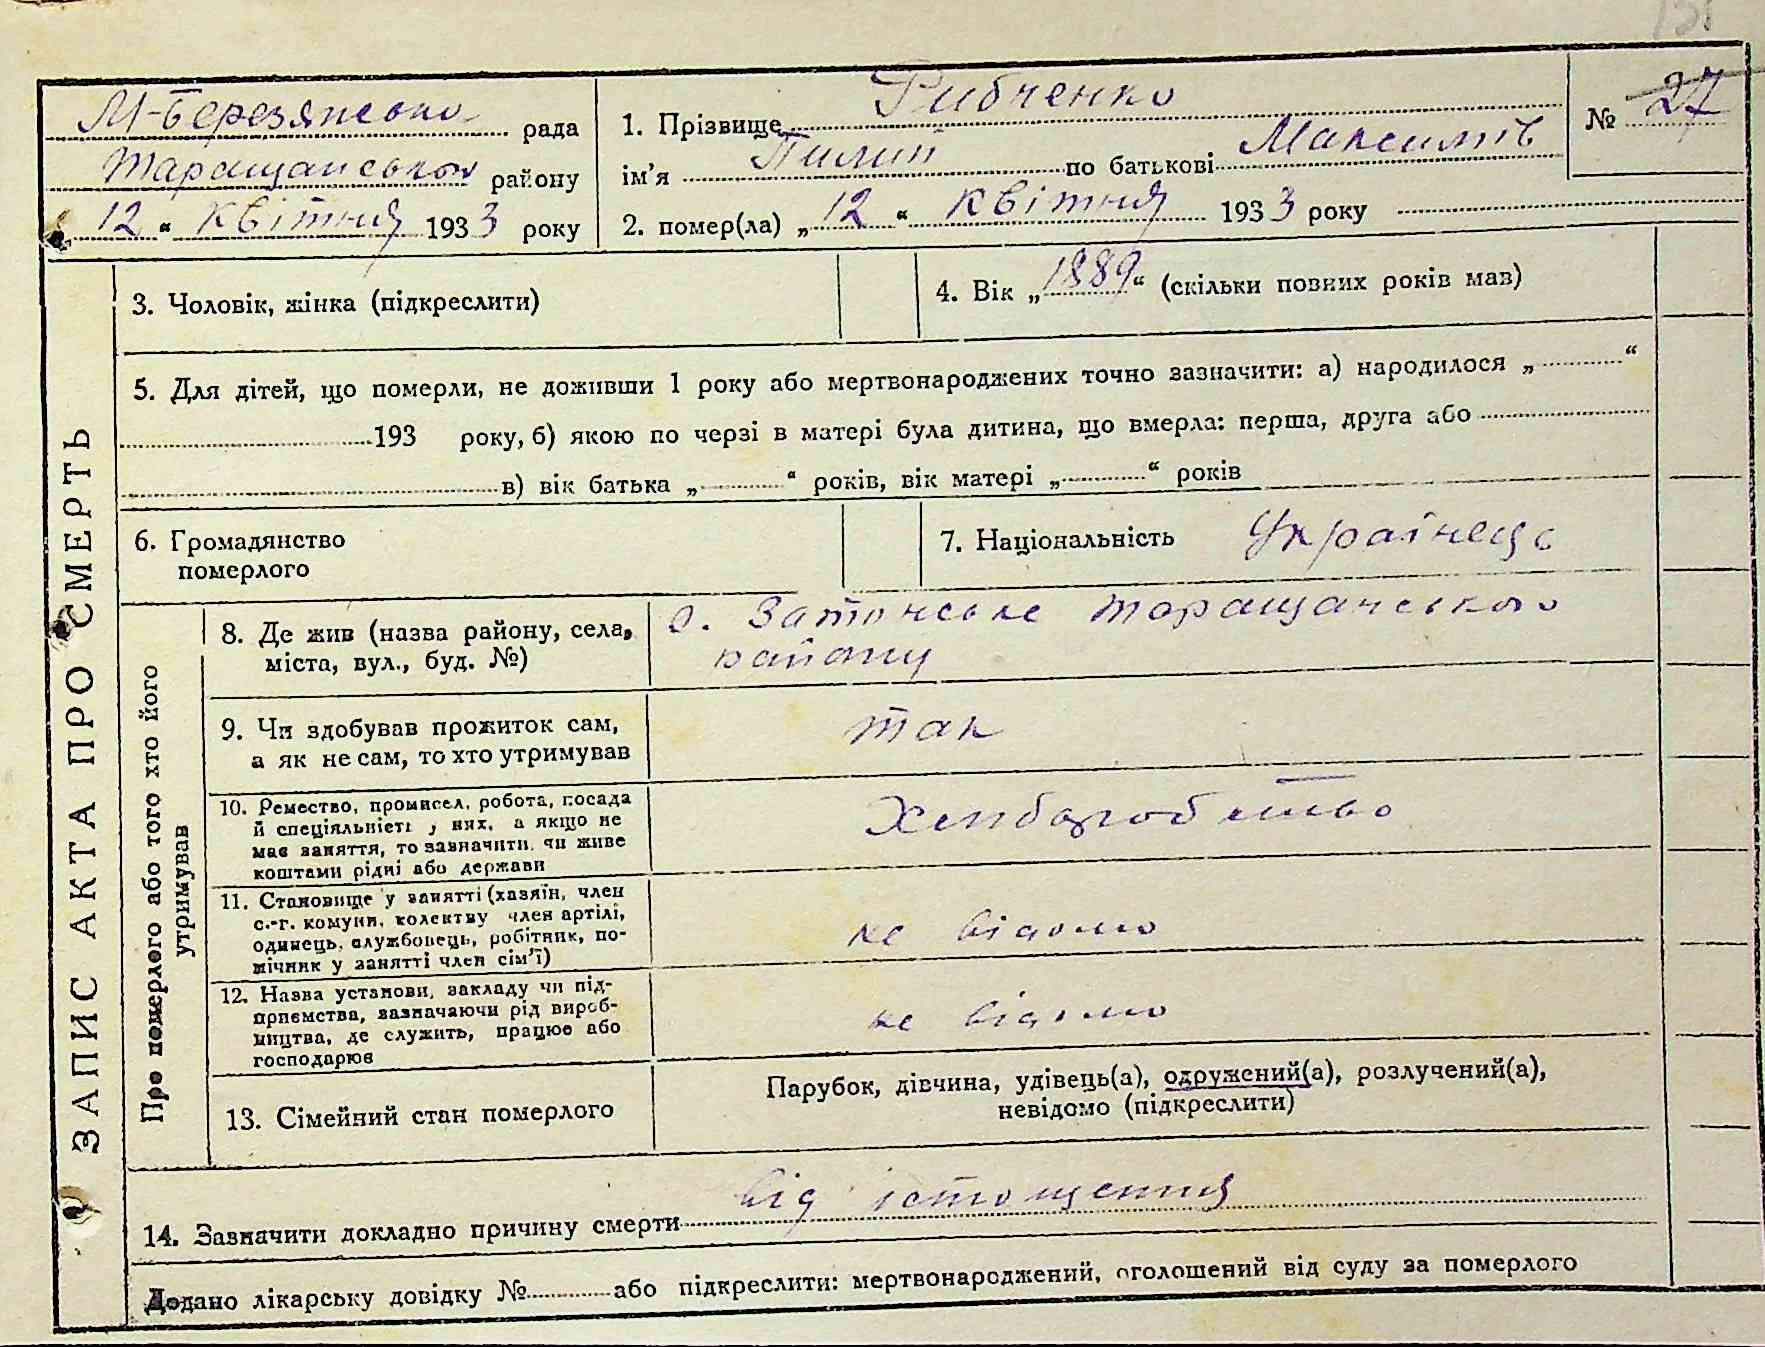 М-Березянсько рада
Таращанського району
12 " квітня 1933 року
1. Прізвище Рибченко
ім'я Пилип по батькові Максимів
2. помер(ла) „ 12 " квітня 1933 року
№ 27
ЗАПИС АКТА ПРО СМЕРТЬ
3. Чоловік, жінка (підкреслити)
4. Вік „ 1889 " (скільки повних років мав)
5. Для дітей, що померли, не доживши 1 року або мертвонароджених точно зазначити: а) народилося „ "
193 року, б) якою по черзі в матері була дитина, що вмерла: перша, друга або
в) вік батька „ " років, вік матері „ " років
6. Громадянство
померлого
7. Національність Українець
Про померлого або того хто його
утримував
8. Де жив (назва району, села,
міста, вул., буд. №)
с. Затонське Таращанського
району
9. Чи здобував прожиток сам,
а як не сам, то хто утримував
так
10. Ремество, промисел, робота, посада
й спеціяльність у них, а якщо не
має заняття, то зазначити, чи живе
коштами рідні або держави
Хлібаробство
11. Становище у занятті (хазяїн, член
с.-г. комуни, колектву член артілі,
одинець, службовець, робітник, по-
мічник у занятті член сім'ї)
не відомо
12. Назва установи, закладу чи під-
приємства, зазначаючи рід вироб-
ництва, де служить, працює або
господарює
не відомо
13. Сімейний стан померлого
Парубок, дівчина, удівець(а), одружений(а), розлучений(а),
невідомо (підкреслити)
14. Зазначити докладно причину смерти від істощения
Додано лікарську довідку № або підкреслити: мертвонароджений, оголошений від суду за померлого